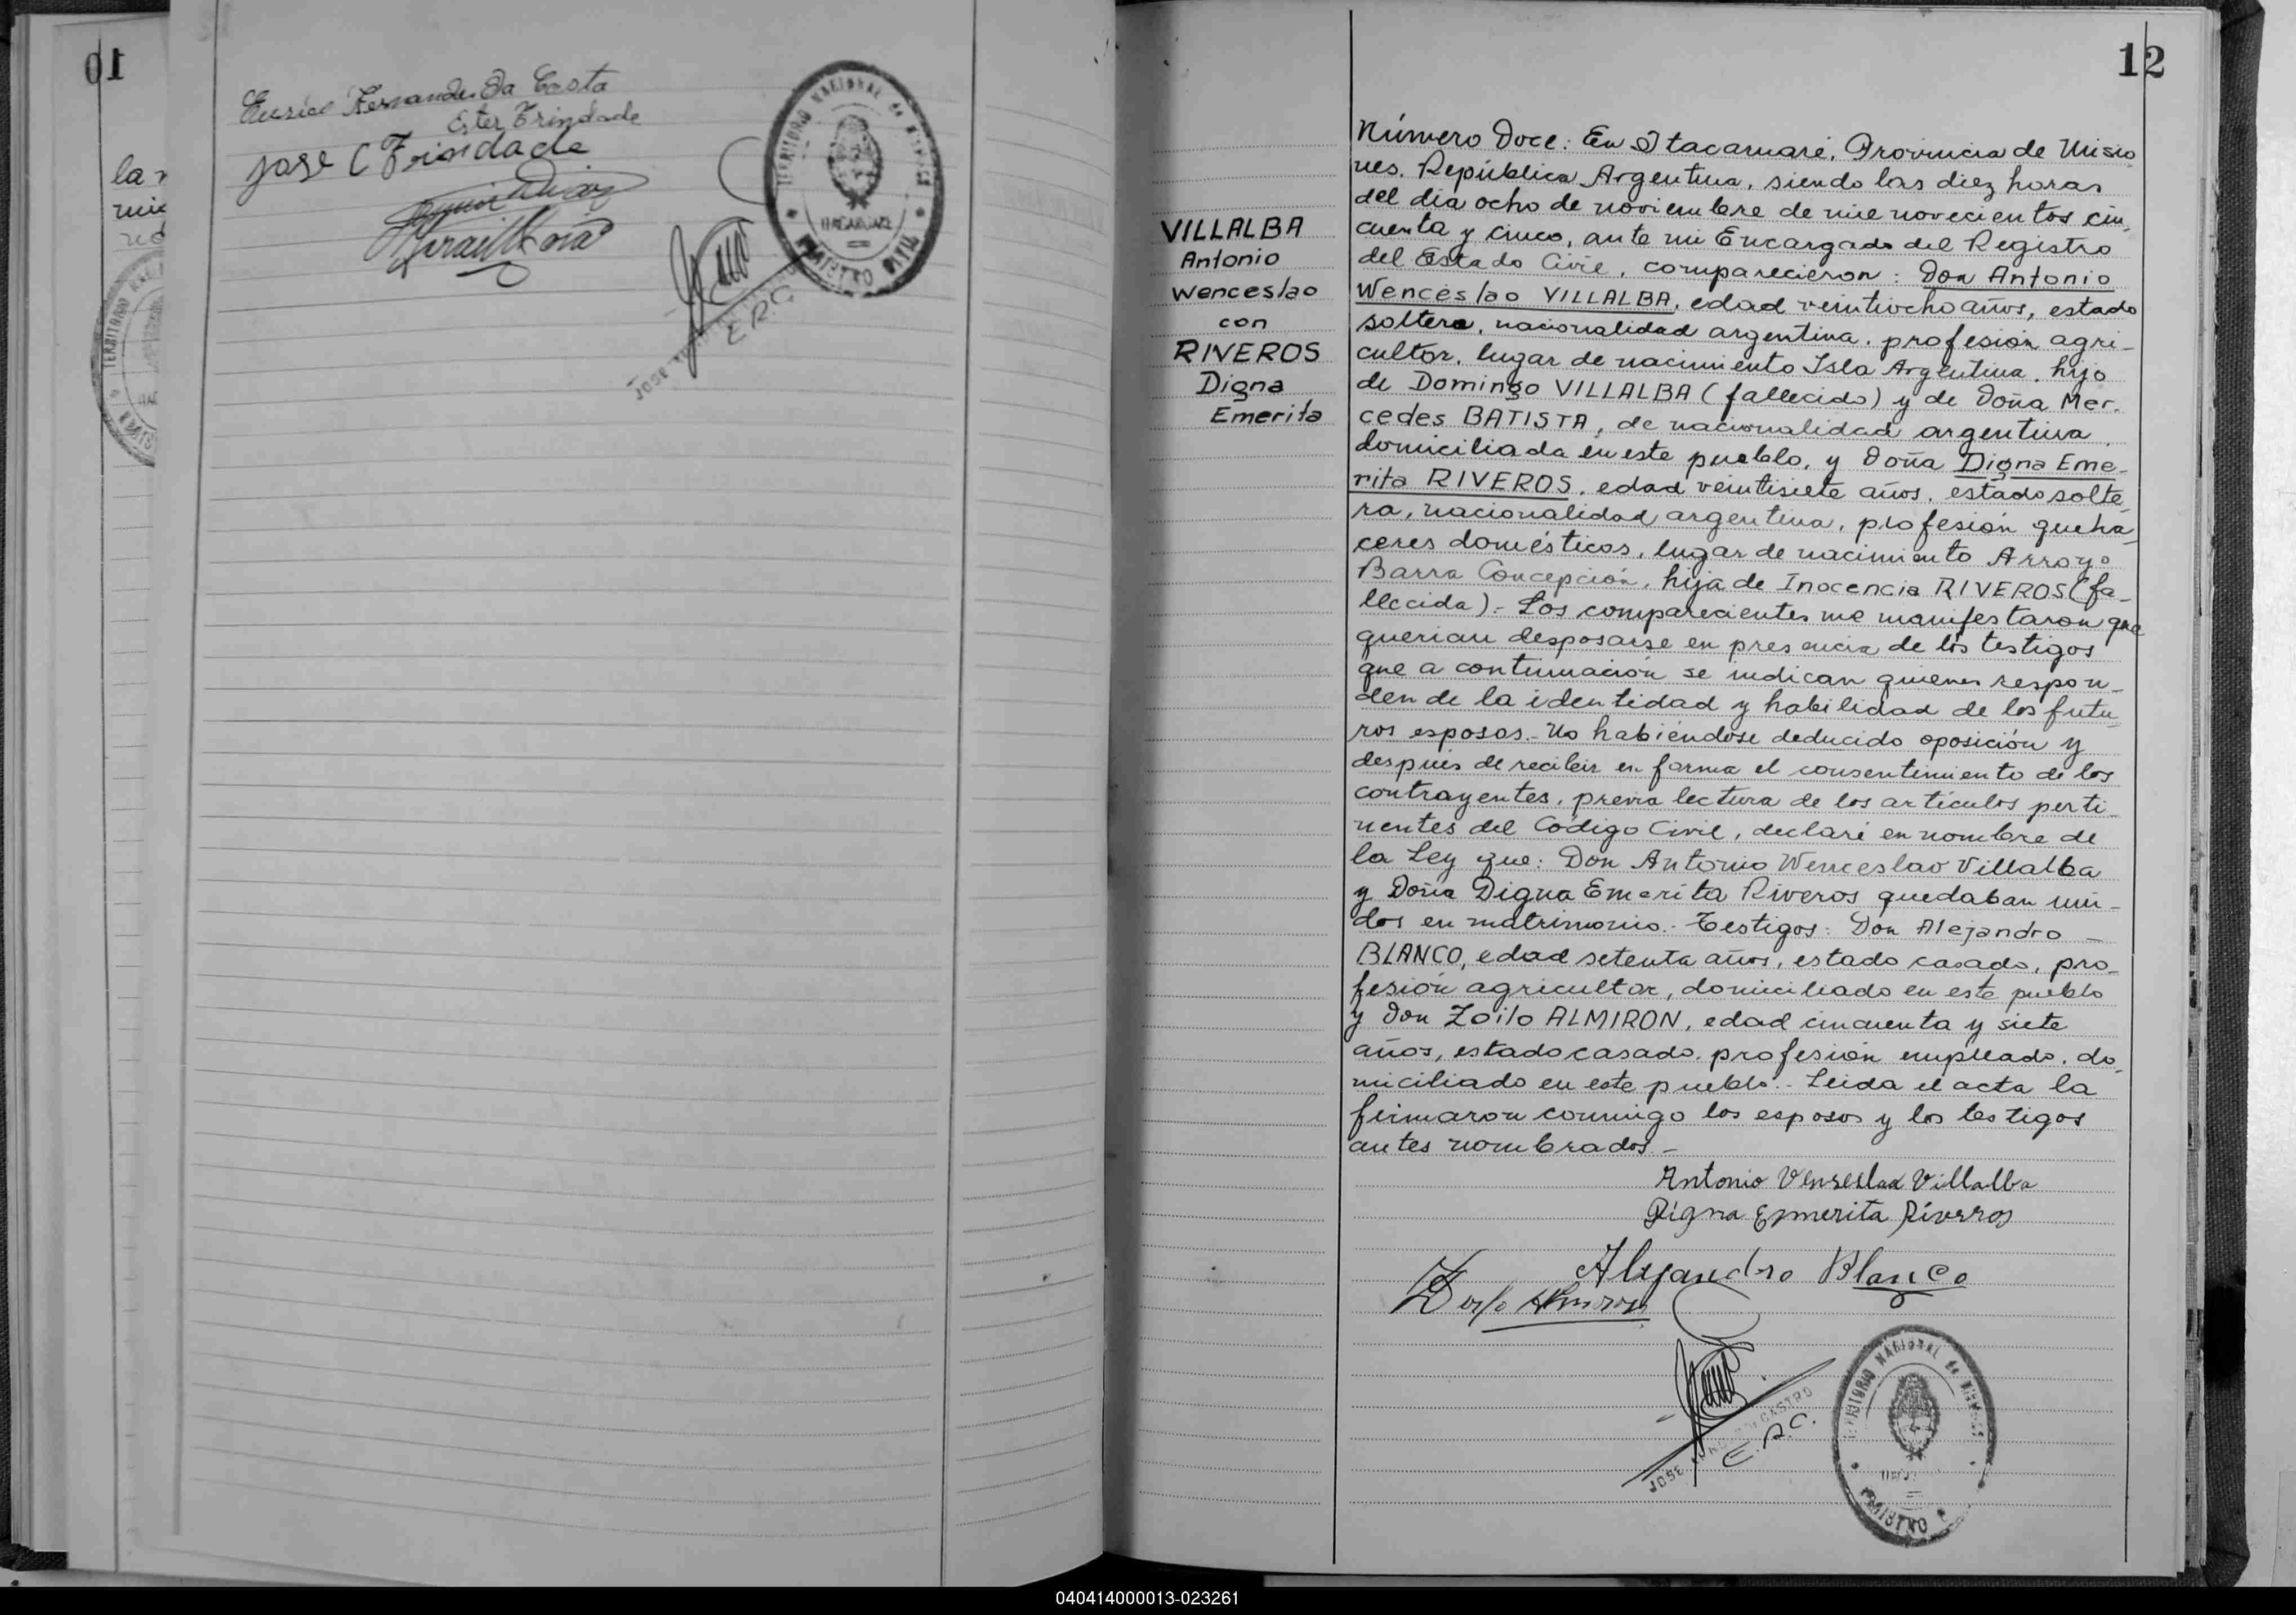 10
la
Ester Trindade
Jose C Trindade
TERRITORIO NACIONAL de MISIONES
ITACARUARE
REGISTRO CIVIL
E.R.C.
JOSE
12
VILLALBA
Antonio
Wenceslao
con
RIVEROS
Digna
Emerita
Número Doce: En Itacaruaré, Provincia de Misio
nes, República Argentina, siendo las diez horas
del dia ocho de noviembre de mil novecientos cin
cuenta y cinco, ante mi Encargado del Registro
del Estado Civil, comparecieron: Don Antonio
Wenceslao VILLALBA, edad veintiocho años, estado
soltero, nacionalidad argentina, profesión agri-
cultor, lugar de nacimiento Isla Argentina, hijo
de Domingo VILLALBA (fallecido) y de doña Mer-
cedes BATISTA, de nacionalidad argentina,
domiciliada en este pueblo, y doña Digna Eme-
rita RIVEROS, edad veintisiete años, estado solte
ra, nacionalidad argentina, profesión queha
ceres domésticos, lugar de nacimiento Arroyo
Barra Concepción, hija de Inocencia RIVEROS (fa-
llecida).- Los comparecientes me manifestaron que
querian desposarse en presencia de los testigos
que a continuación se indican quienes respon-
den de la identidad y habilidad de los futu
ros esposos.- No habiéndose deducido oposición y
después de recibir en forma el consentimiento de los
contrayentes, previa lectura de los artículos perti-
nentes del Código Civil, declaré en nombre de
la Ley que: Don Antonio Wenceslao Villalba
y Doña Digna Emerita Riveros quedaban uni-
dos en matrimonio.- Testigos: Don Alejandro -
BLANCO, edad setenta años, estado casado, pro-
fesión agricultor, domiciliado en este pueblo
y don Zoilo ALMIRON, edad cincuenta y siete
años, estado casado, profesión empleado, do
miciliado en este pueblo.- Leida el acta la
firmaron conmigo los esposos y los testigos
antes nombrados.-
Antonio Venseslad Villalba
Digna Emerita Riveros
Alejandro Blanco
Zoilo Almiron
JOSE CASTRO
E.R.C.
TERRITORIO NACIONAL de MISIONES
REGISTRO
040414000013-023261